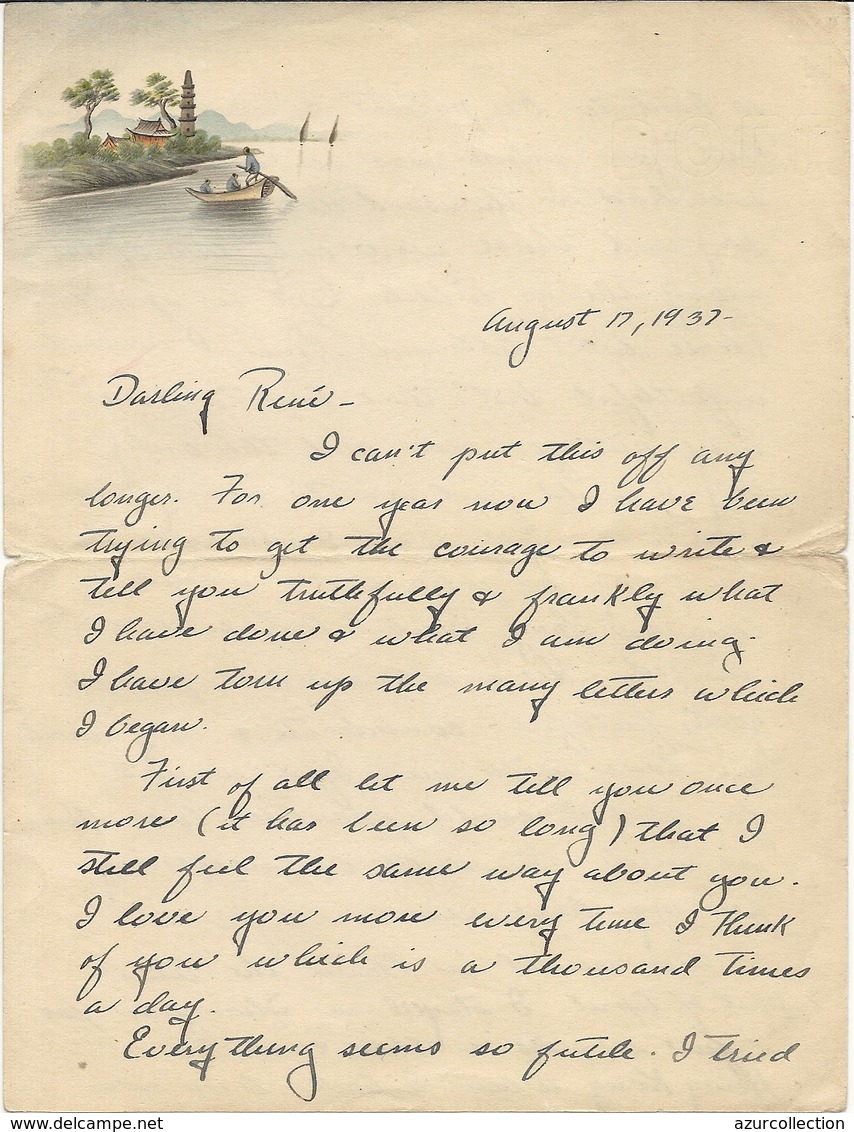 August 17, 1937-
Darling René -
I can't put this off any
longer. For one year now I have been
trying to get the courage to write &
tell you truthfully & frankly what
I have done & what I am doing.
I have torn up the many letters which
I began.
First of all let me tell you once
more (it has been so long) that I
still feel the same way about you.
I love you more every time I think
of you which is a thousand times
a day.
Everything seems so futile. I tried
delcampe.net
azurcollection